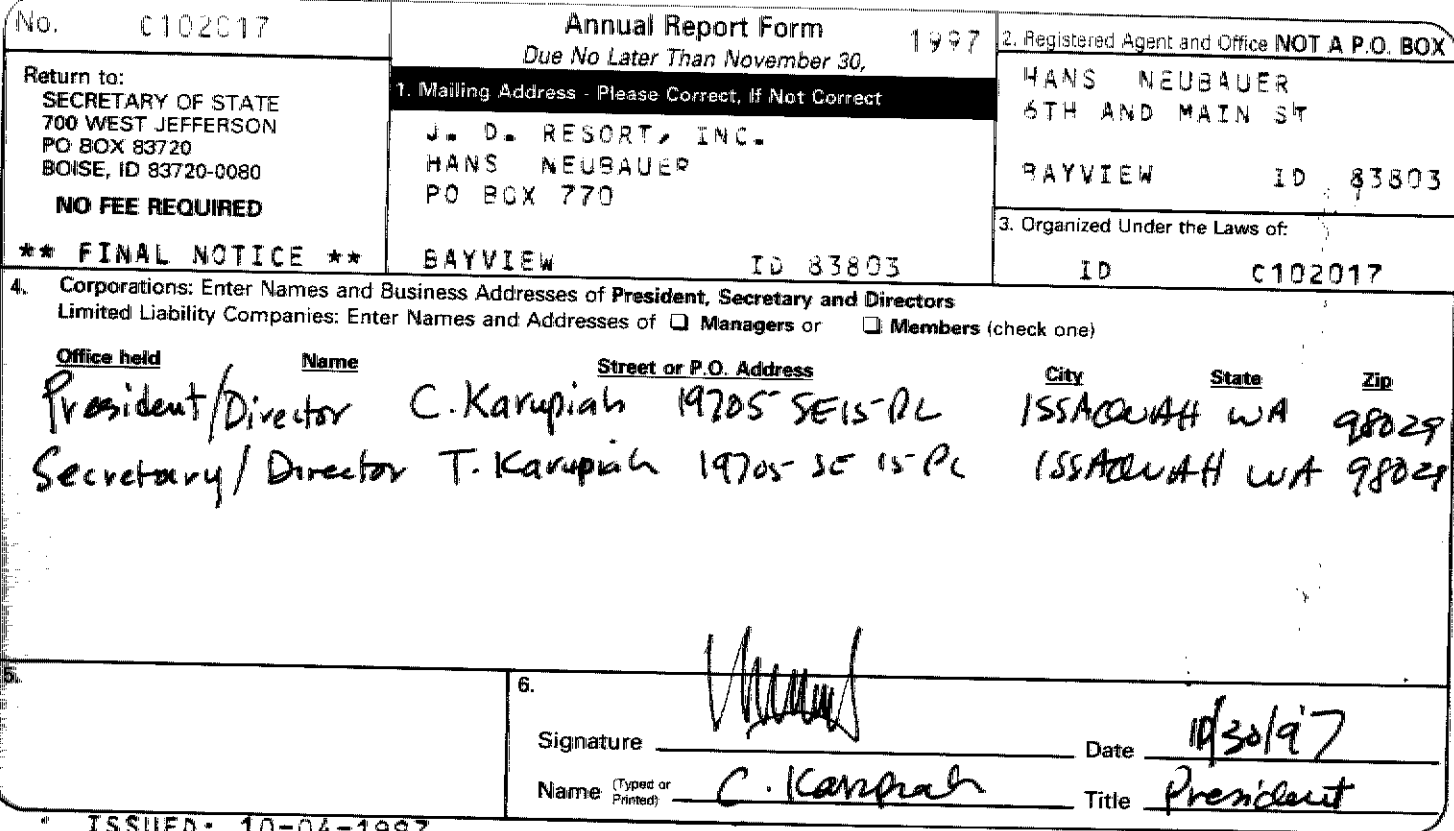 No. C102017
Annual Report Form 1997
Due No Later Than November 30,
Return to:
SECRETARY OF STATE
700 WEST JEFFERSON
PO BOX 83720
BOISE, ID 83720-0080
NO FEE REQUIRED
** FINAL NOTICE **
1. Mailing Address - Please Correct, If Not Correct
J. D. RESORT, INC.
HANS NEUBAUER
PO BOX 770
BAYVIEW ID 83803
2. Registered Agent and Office NOT A P.O. BOX
HANS NEUBAUER
6TH AND MAIN ST
BAYVIEW ID 83803
3. Organized Under the Laws of:
ID C102017
4. Corporations: Enter Names and Business Addresses of President, Secretary and Directors
Limited Liability Companies: Enter Names and Addresses of ❑ Managers or ❑ Members (check one)
Office held Name Street or P.O. Address City State Zip
President/Director C. Karupiah 19705 SE 15 PL ISSAQUAH WA 98029
Secretary/Director T. Karupiah 19705 SE 15 PL ISSAQUAH WA 98029
5.
6.
Signature Date 10/30/97
Name (Typed or Printed) C. Karupiah Title President
ISSUED: 10-04-1997